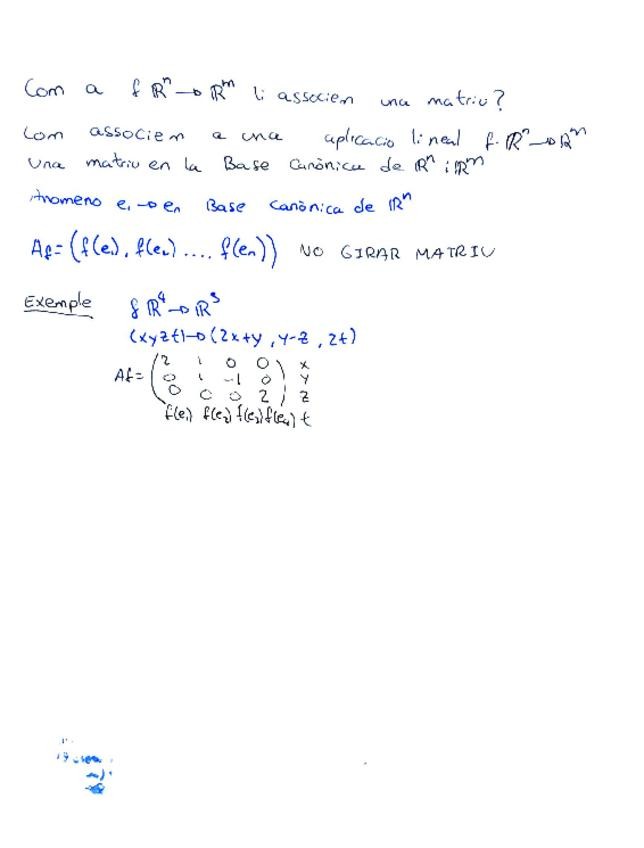 Com a f ℝⁿ → ℝᵐ li associem una matriu?
Com associem a una aplicacio lineal f. ℝⁿ → ℝᵐ
una matriu en la Base Canònica de ℝⁿ i ℝᵐ
Anomeno e₁ → eₙ Base Canònica de ℝⁿ
Af = (f(e₁), f(e₂) .... f(eₙ)) NO GIRAR MATRIU
Exemple f ℝ⁴ → ℝ³
(x y z t) → (2x+y, y-z, 2t)
Af = ( 2 1 0 0 ) x
0 1 -1 0 y
0 0 0 2 z
f(e₁) f(e₂) f(e₃) f(e₄) t